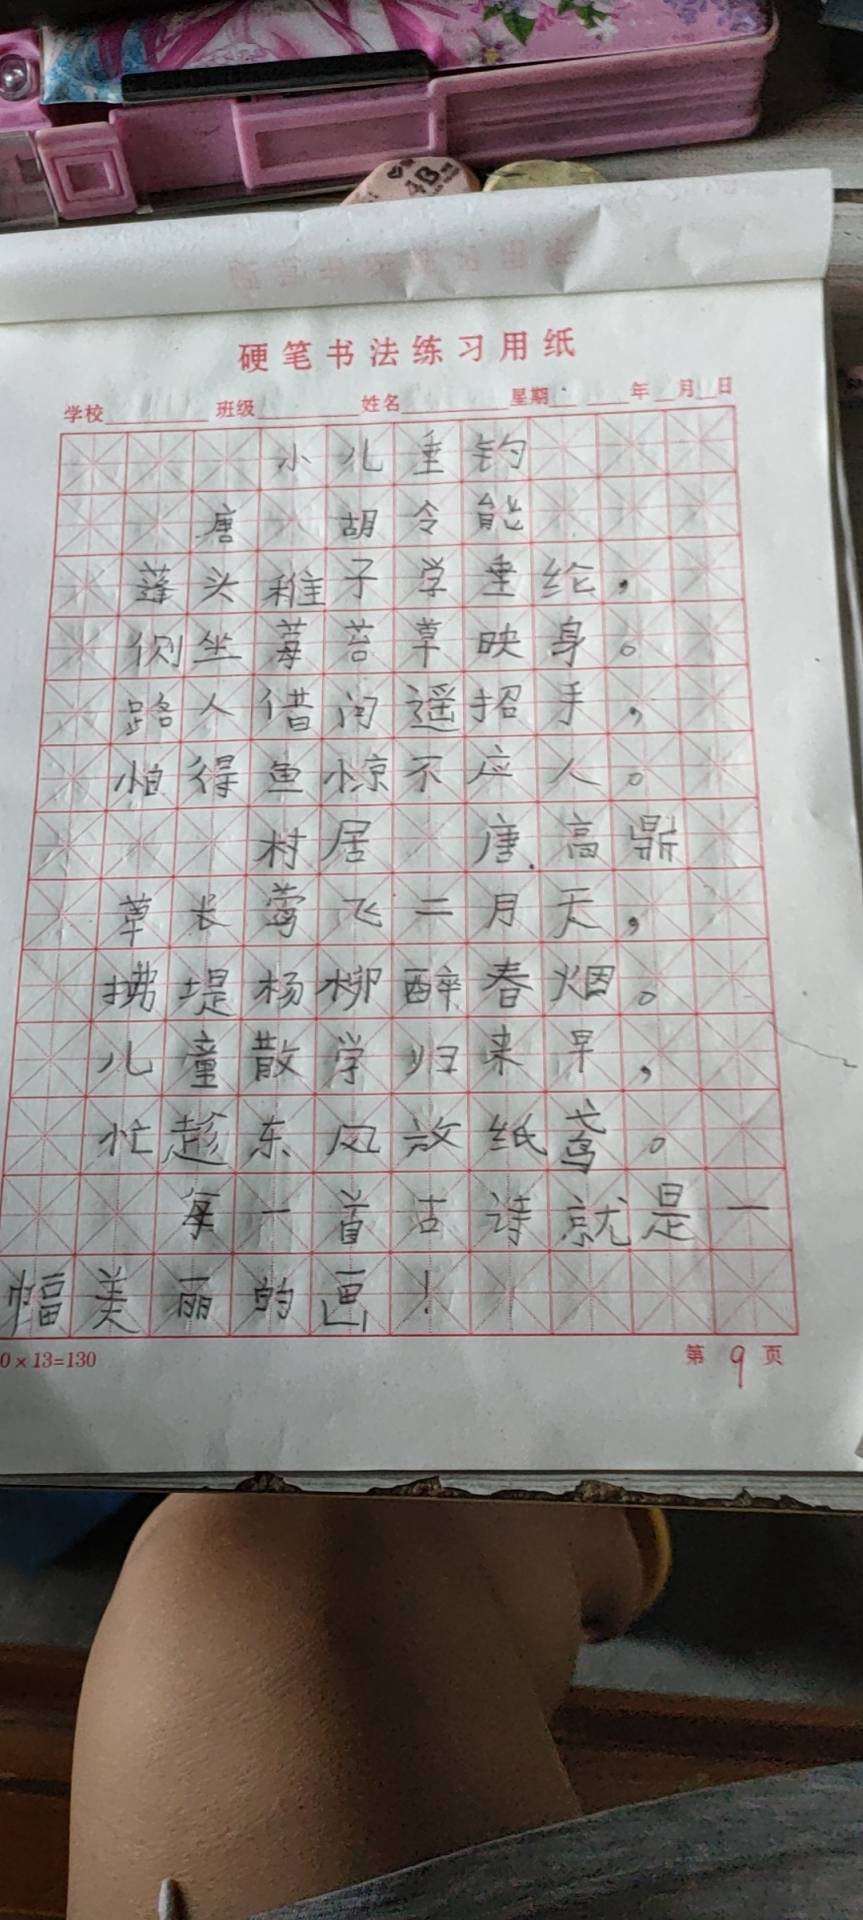 4B
硬笔书法练习用纸
学校 班级 姓名 星期 年 月 日
小儿垂钓
唐 胡令能
蓬头稚子学垂纶，
侧坐莓苔草映身。
路人借问遥招手，
怕得鱼惊不应人。
村居 唐.高鼎
草长莺飞二月天，
拂堤杨柳醉春烟。
儿童散学归来早，
忙趁东风放纸鸢。
每一首古诗就是一
幅美丽的画！
0×13=130
第 9 页